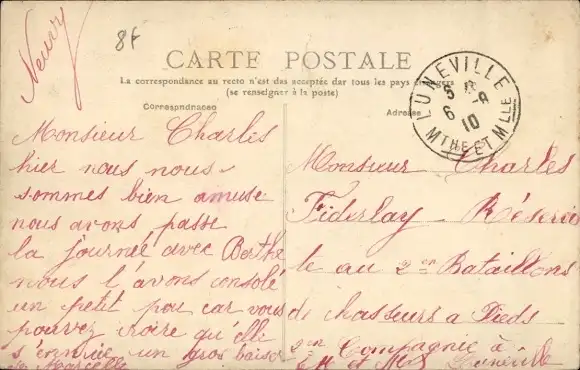 Neuvy
8f
CARTE POSTALE
La correspondance au recto n'est das acceptée dar tous les pays étrangers
(se renseigner à la poste)
Correspndnacee
Adresse
LUNEVILLE
6 -9
10
MTHE ET MLLE
Monsieur Charles
hier nous nous
sommes bien amuse
nous avons passe
la journée avec Berthe
nous l'avons consolé
un petit pou car vous
pouvez croire qu'elle
s'ennuie un gros baiser
Marcelle
Monsieur Charles
Fiderlay - Réservis
te au 2en Bataillons
de chasseurs a Pieds
2en Compagnie à
M et M Lunéville